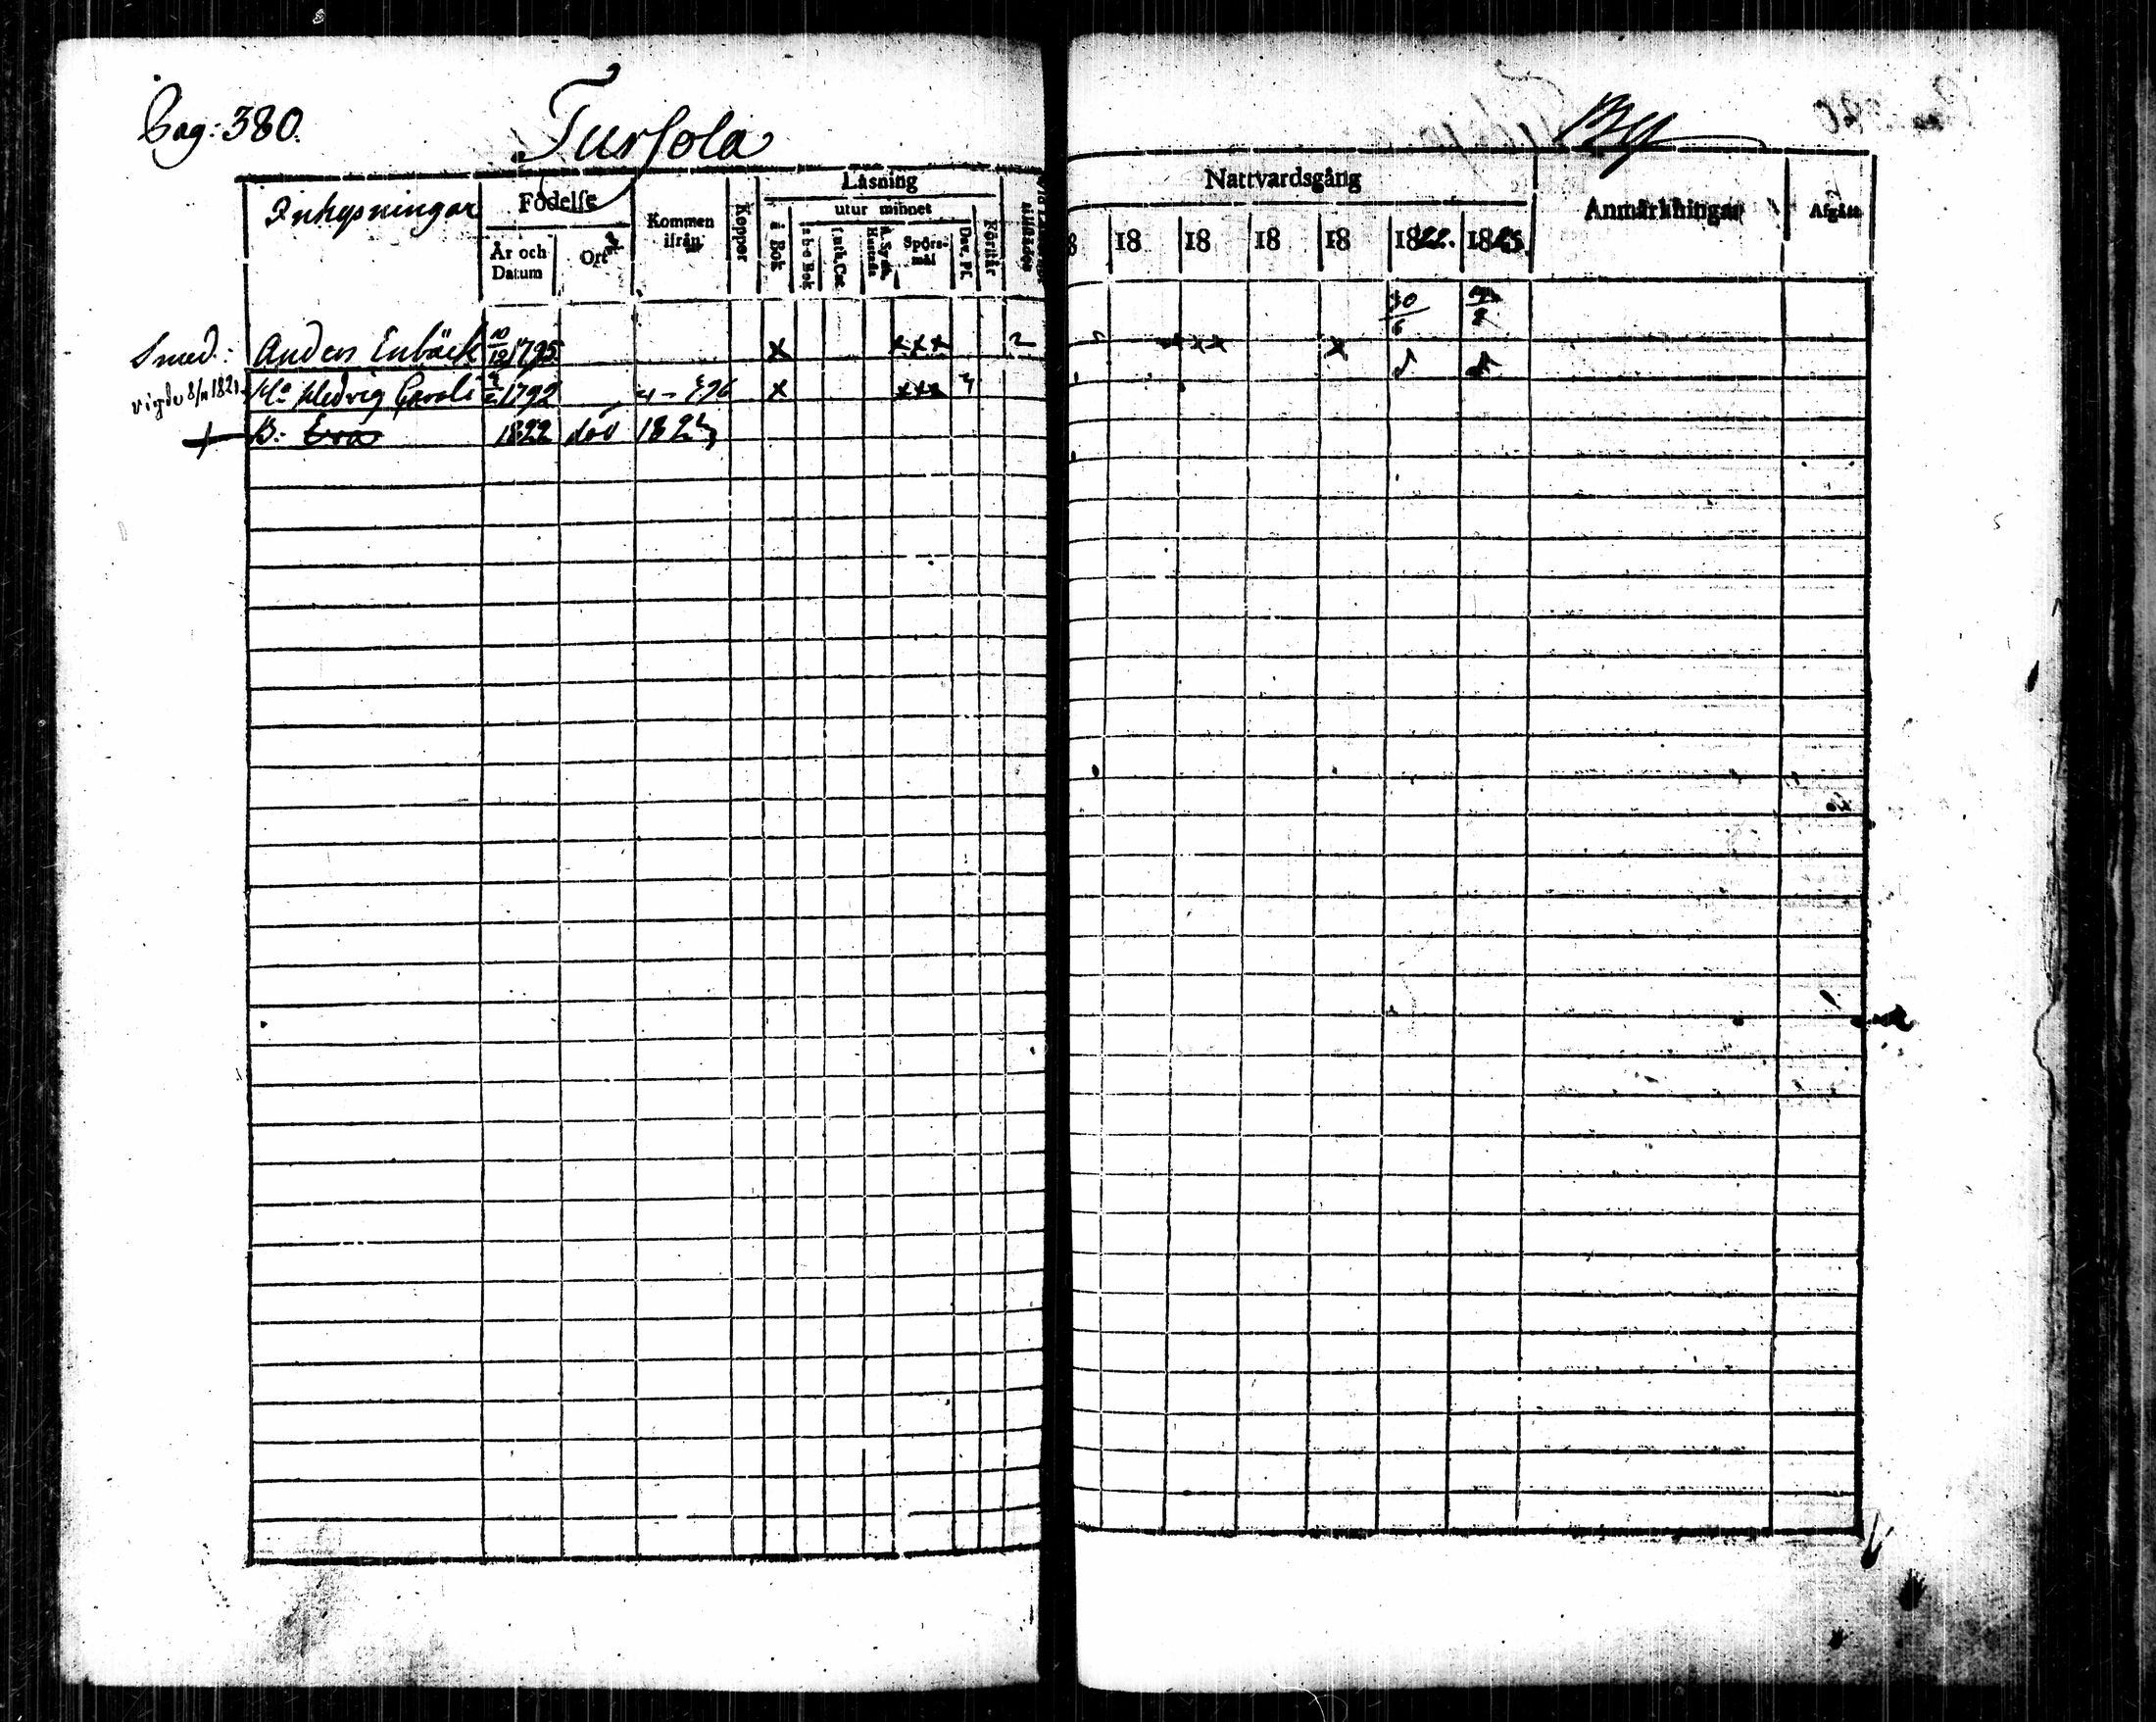 Pag: 380.
Tursola
By
Inhysningar
Födelse
År och Datum
Ort
Kommen ifrån
Koppor
Läsning
i Bok
utur minnet
a b c Bok
Luth. Cat.
Spörsmål
Dav. Ps.
Förstår
Nattvardsgång
18 18 18 18 18 1822. 1823.
Anmärkningar
Afgått
30/6
Smed: Anders Enbäck 10/12 1795 x xxx
vigde 8/11 1821. Ha Hedvig Caroli 1792 x xxx
+ B: Eva 1822 död 1822